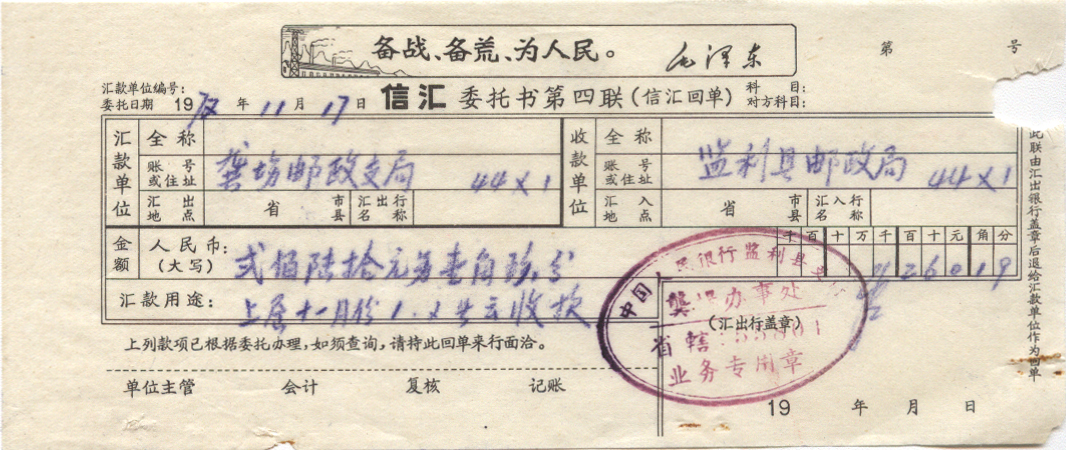 备战、备荒、为人民。
毛泽东
第 号
汇款单位编号:
委托日期 19 年 11 月 17 日
信汇 委托书第四联(信汇回单)
科 目:
对方科目:
汇款单位
全称
账号或住址
龚场邮政支局 44X1
汇出地点
省 市县
汇出行名称
收款单位
全称
账号或住址
监利县邮政局 44X1
汇入地点
省 市县
汇入行名称
金额
人民币:(大写)
弍佰陆拾元另壹角玖分
千百十万千百十元角分
26019
汇款用途:
上 十一月份 收款
上列款项已根据委托办理,如须查询,请持此回单来行面洽。
单位主管 会计 复核 记账
中国人民银行监利县支行
龚场办事处
(汇出行盖章)
省辖
业务专用章
19 年 月 日
此联由汇出银行盖章后退给汇款单位作为回单